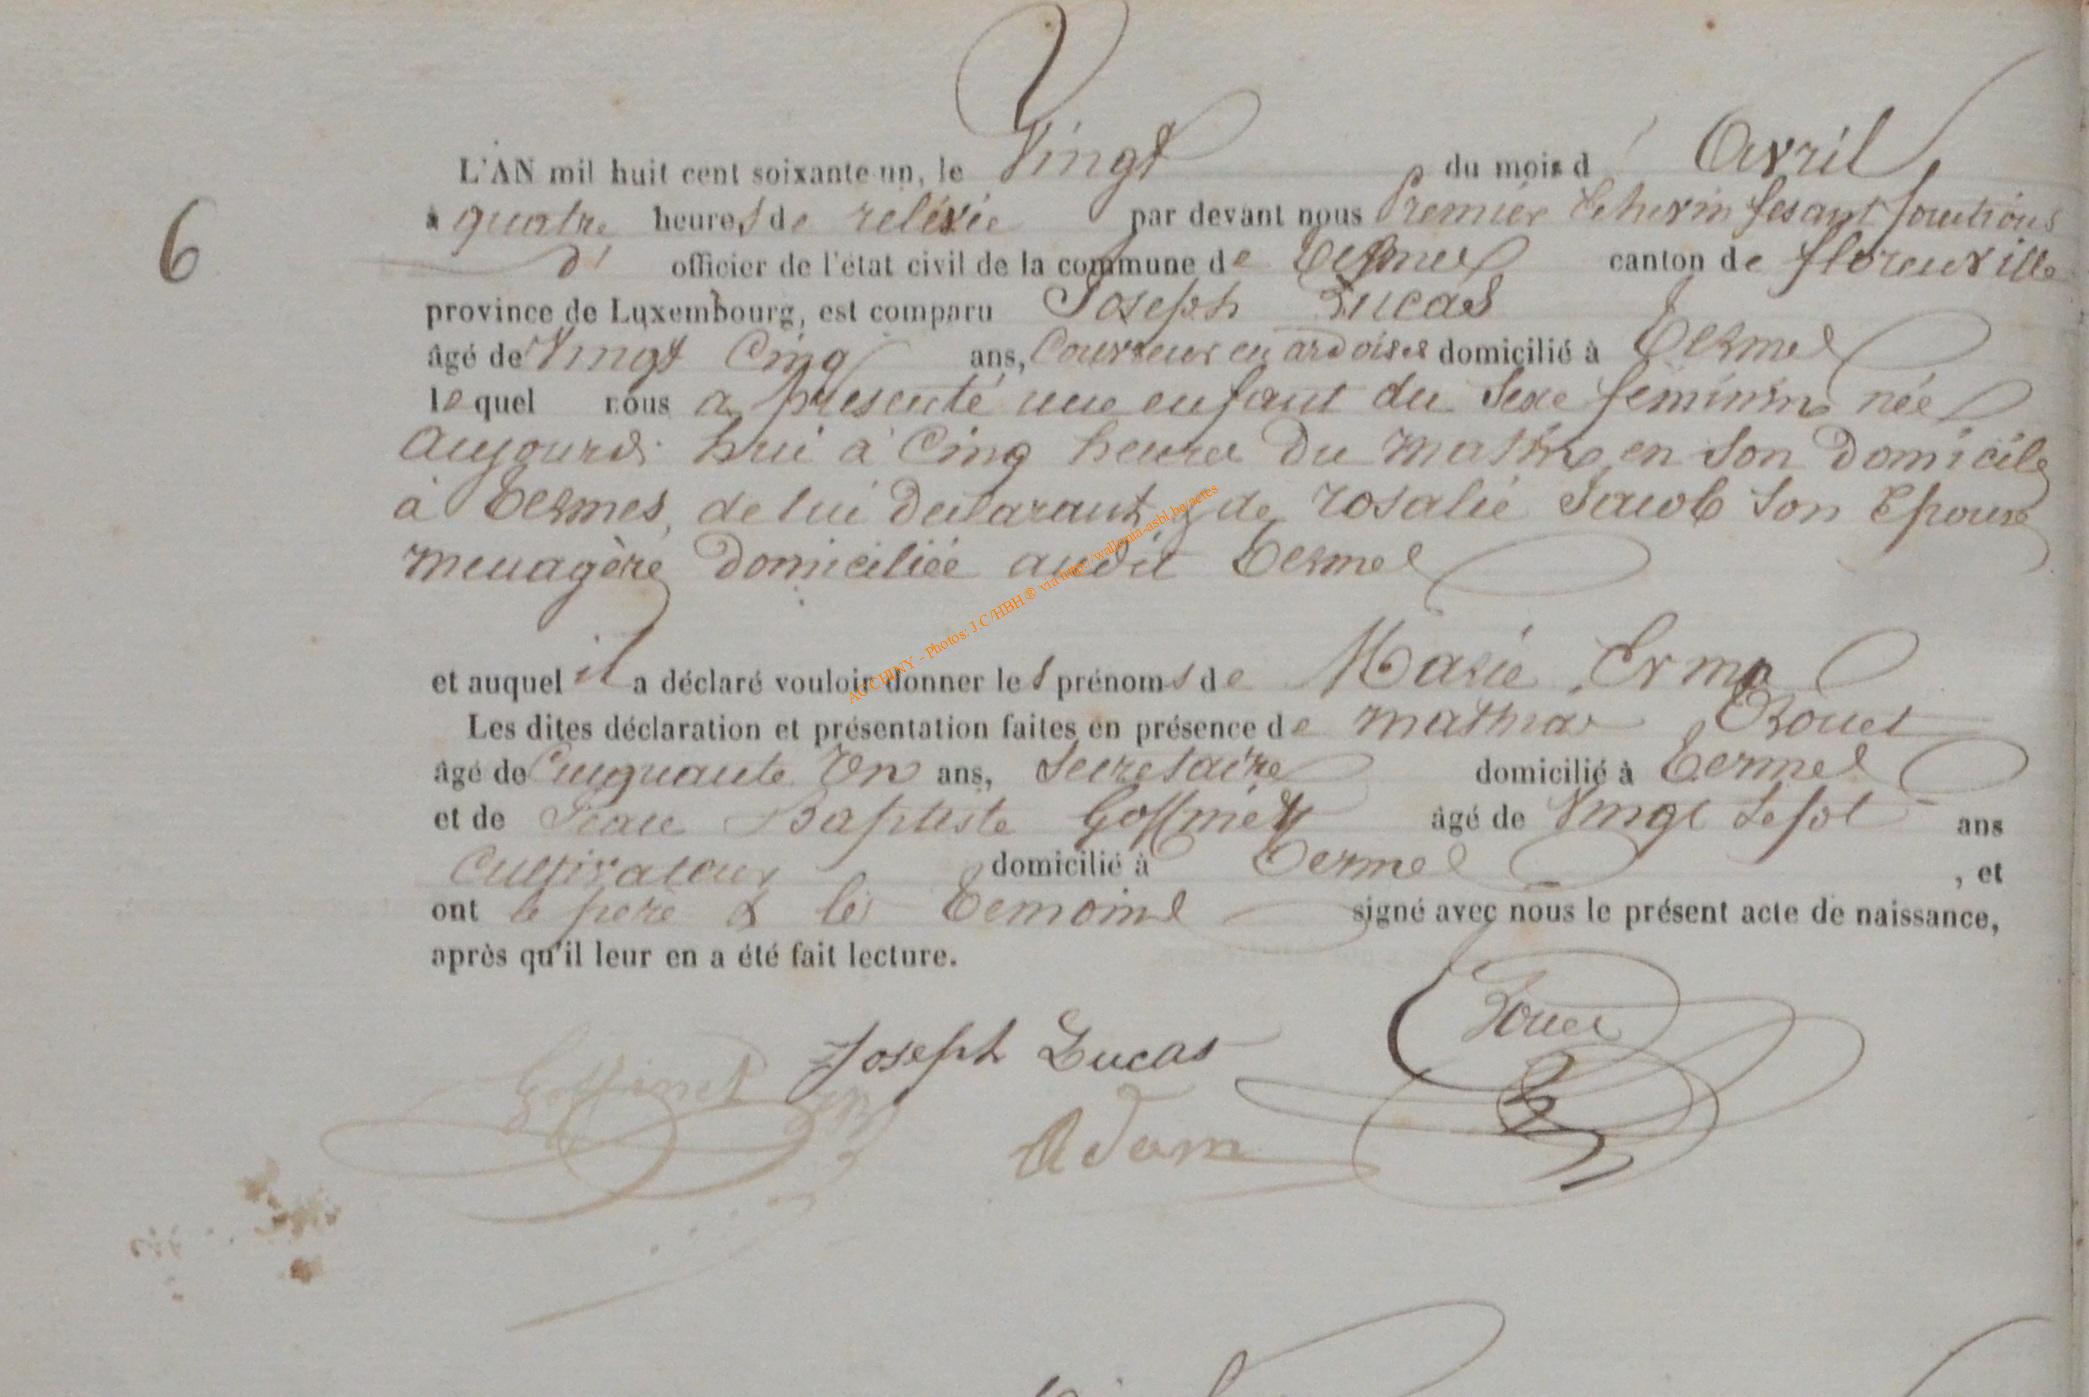 L'AN mil huit cent soixante-un, le Vingt du mois d' Avril
6
à quatre heures de relévée par devant nous Premier Echevin fesant fonctions
d' officier de l'état civil de la commune de Termes canton de florenville
province de Luxembourg, est comparu Joseph Lucas
âgé de Vingt Cinq ans, Couvreur en ardoises domicilié à Termes
lequel nous a présenté une enfant du Sexe féminin née
aujourd'hui à Cinq heures Du matin en Son Domicile
à Termes, de lui Déclarant & de rosalie Jacob Son Epouse
menagère Domiciliée audit Termes
et auquel il a déclaré vouloir donner les prénoms de Marie Erma
Les dites déclaration et présentation faites en présence de mathias Rouet
âgé de Cinquante Un ans, Secretaire domicilié à Termes
et de Jean Baptiste Goffinet âgé de Vingt Sept ans
Cultivateur domicilié à Termes , et
ont le père & les Témoins signé avec nous le présent acte de naissance,
après qu'il leur en a été fait lecture.
Joseph Lucas Rouet
Goffinet
Adam
AC CHINY - Photos: J.C/HBH® via http://wallonia-asbl.be/actes